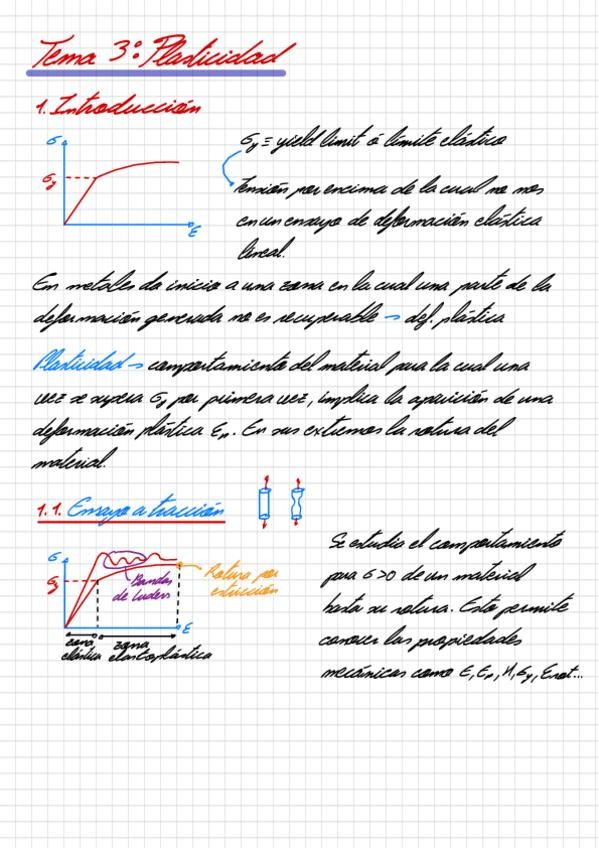 Tema 3: Plasticidad
1. Introducción
σ
σy
ε
σy ≡ yield limit ó límite elástico
Tensión por encima de la cual no nos
en un ensayo de deformación elástica
lineal.
En metales da inicio a una zona en la cual una parte de la
deformación generada no es recuperable → def. plástica
Plasticidad → comportamiento del material para la cual una
vez se supera σy por primera vez, implica la aparición de una
deformación plástica εp. En sus extremos la rotura del
material.
1.1. Ensayo a tracción
σ
σy
ε
Bandas
de Luders
Rotura por
estricción
zona
elástica
zona
elastoplástica
Se estudia el comportamiento
para σ>0 de un material
hasta su rotura. Esto permite
conocer las propiedades
mecánicas como E, Ep, H, σy, εrot...